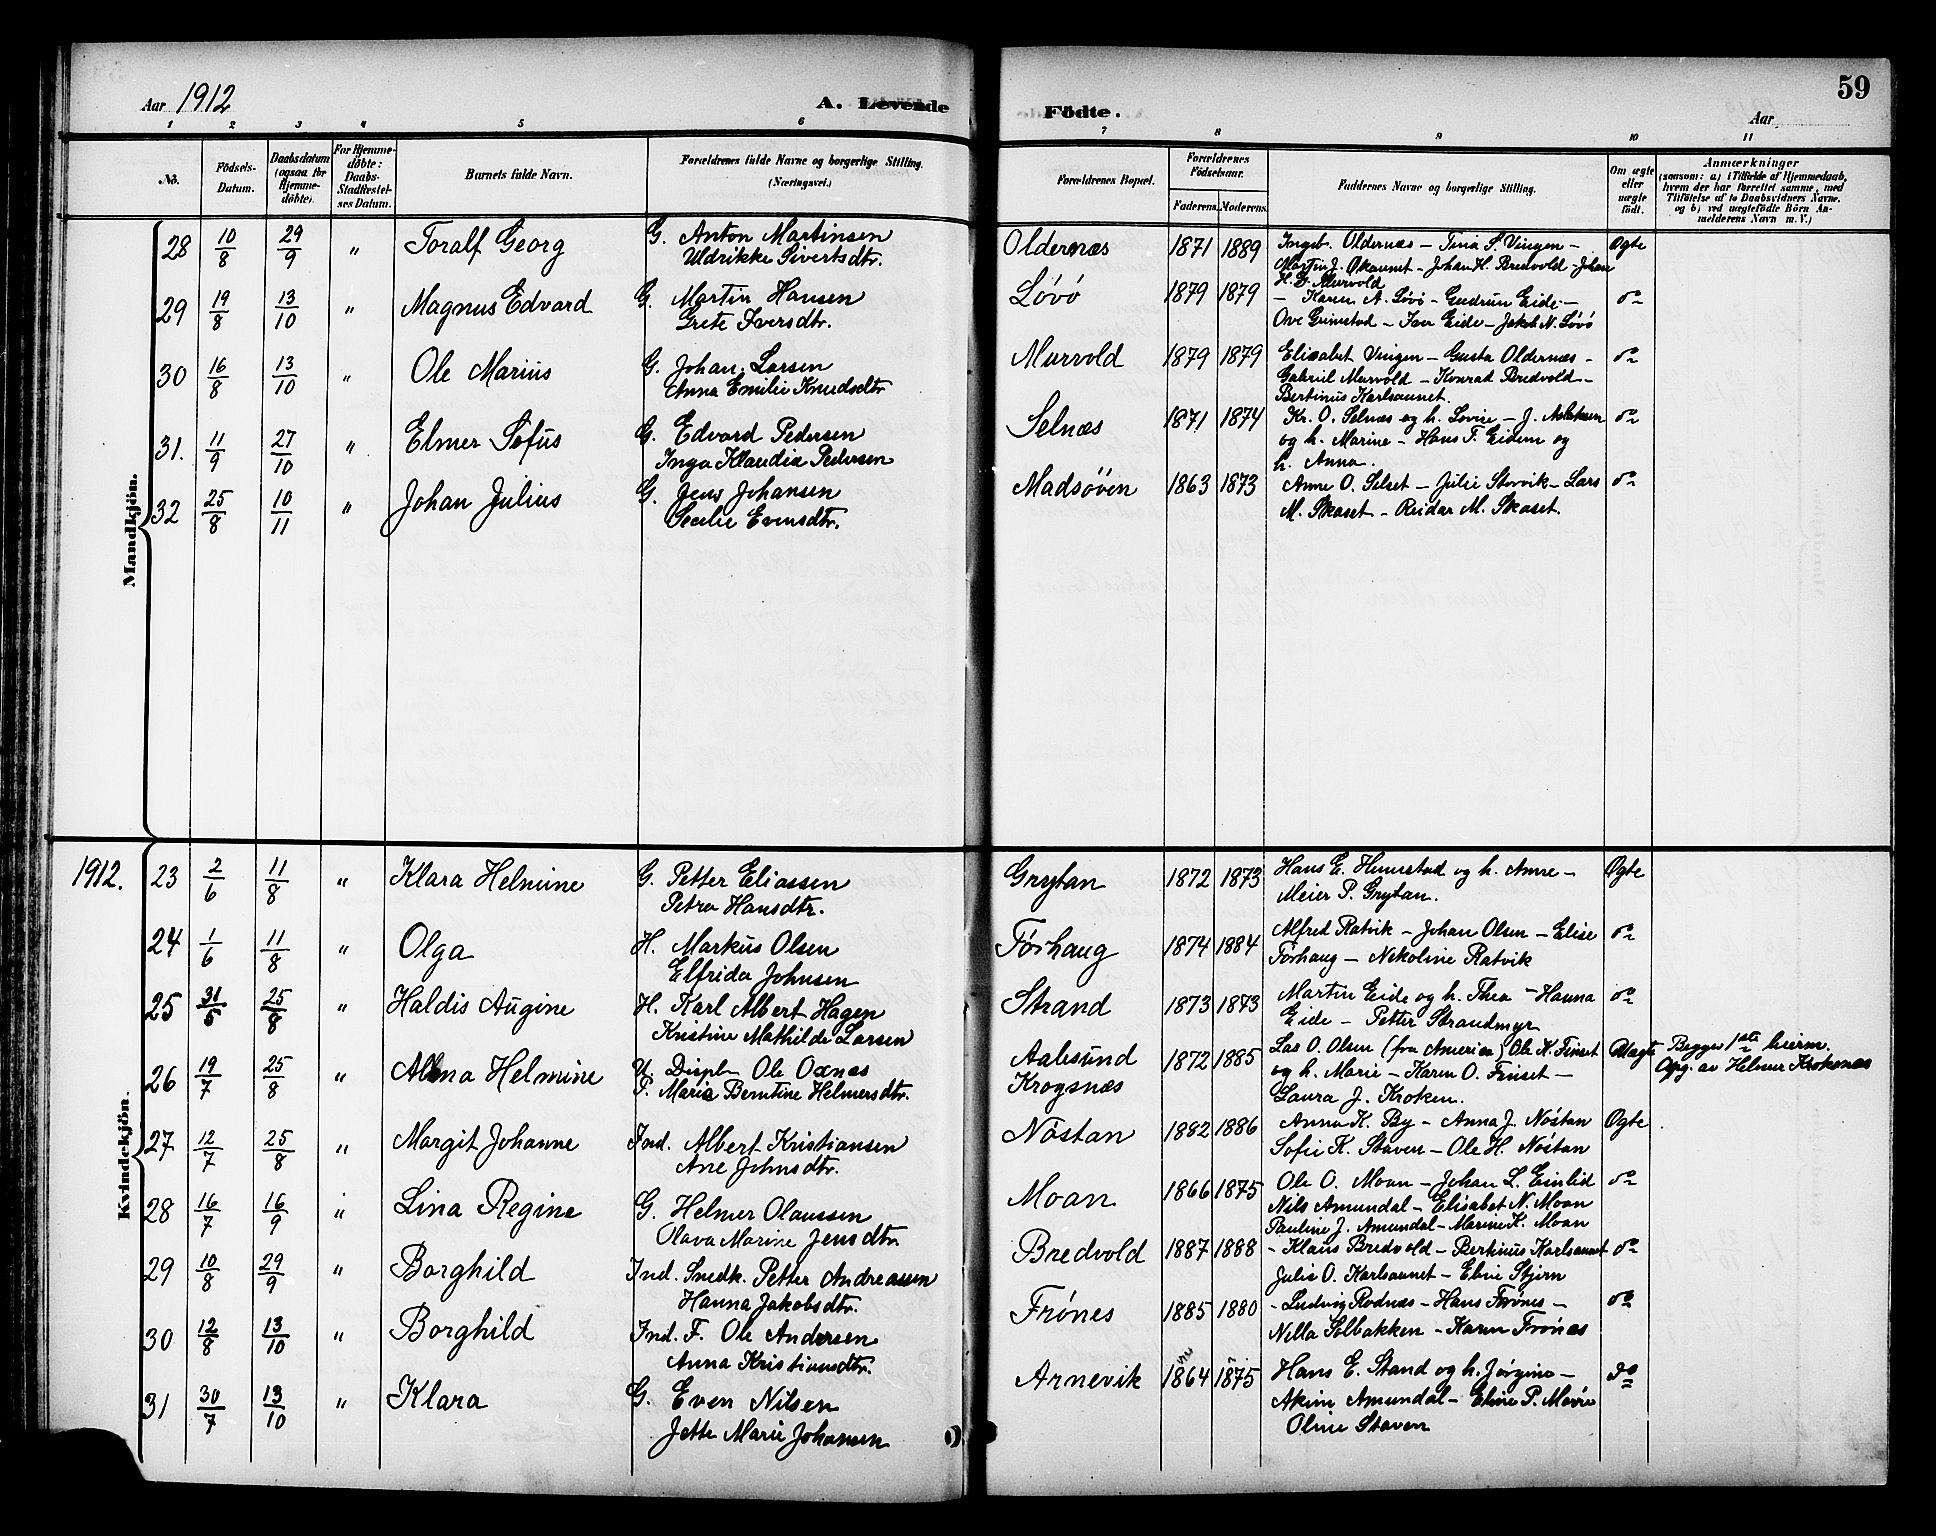 59
Aar 1912 A. Levende Födte. Aar
1 2 3 4 5 6 7 8 9 10 11
Nö. Födsels-Datum. Daabsdatum (ogsaa for Hjemme-döbte). For Hjemme-döbte: Daabs-Stadfæstel-ses Datum. Barnets fulde Navn. Forældrenes fulde Navne og borgerlige Stilling. (Næringsvei.) Forældrenes Bopæl. Forældrenes Födselsaar. Faderens. Moderens. Faddernes Navne og borgerlige Stilling. Om ægte eller uægte födt. Anmærkninger (saasom: a) i Tilfælde af Hjemmedaab, hvem der har forrettet samme, med Tilföielse af to Daabsvidners Navne, og b) ved uægtefödte Börn An-melderens Navn m. V.)
Mandkjön.
28 10/8 29/9 " Toralf Georg G. Anton Martinsen Oldernæs 1871 1889 Ingeb. Oldernæs - Tina S. Vingen - Ægte
Uldrikke Sivertsdtr. Martin J. Økaunet - Johan H. Bredvold - Johan
H. D. Murvold
29 19/8 13/10 " Magnus Edvard G. Martin Hansen Løvø 1879 1879 - Karen A. Løvø - Gudrun Eide - do
Grete Iversdtr. Ove Grimstad - Iver Eide - Jakob N. Løvø
30 16/8 13/10 " Ole Marius G. Johan Larsen Murvold 1879 1879 Elisabet Vingen - Gusta Oldernæs - do
Anna Emilie Knudsdtr Gabriel Murvold - Konrad Bredvold -
Bertinus Karlsaunet.
31. 11/9 27/10 " Elmer Sofus G. Edvard Pedersen Selnæs 1871 1874 Kr. O. Selnæs og h. Lovise - J. Aslaksen do
Inga Klaudia Pedersen og h. Marine - Hans F. Eidem og
h. Anna.
32 25/8 10/11 " Johan Julius G. Jens Johansen Madsøven 1863 1873 Anne O. Selset - Julie Storvik - Lars do
Secelie Evensdtr. M. Skaset - Reidar M. Skaset.
1912. Kvindekjön.
23 2/6 11/8 " Klara Helmine G. Petter Eliassen Grytan 1872 1873 Hans E. Hennstad og h. Anne - Ægte
Petra Hansdtr. Meier P. Grytan.
24 1/6 11/8 " Olga H. Markus Olsen Førhaug 1874 1884 Alfred Ratvik - Johan Olsen - Elise do
Elfrida Johnsen Førhaug - Nekoline Ratvik
25 31/5 25/8 " Haldis Augine H. Karl Albert Hagen Strand 1873 1873 Martin Eide og h. Thea - Hanna do
Kristine Mathilde Larsen Eide - Petter Strandmyr
26 19/7 25/8 " Alma Helmine U. Displ. Ole Oxnæs Aalesund 1872 1885 Las O. Olsen (fra Amerika) Ole K. Finset Uægte Begges 1ste leierm.
P. Marie Berntine Helmersdtr. Krogsnæs og h. Marie - Karen O. Finset - Opg. av Helmer Kroksnæs
Laura J. Kroken.
27 12/7 25/8 " Margit Johanne Ind. Albert Kristiansen Nöstan 1882 1886 Anna K. By - Anna J. Nöstan Ægte
Ane Johnsdtr. Sofie K. Staven - Ole H. Nöstan
28 16/7 16/9 " Lina Regine G. Helmer Olaussen Moan 1866 1875 Ole O. Moan - Johan L. Einlid do
Olava Marine Jensdtr. Nils Amundal - Elisabet N. Moan
Pauline J. Amundal - Marine K. Moan
29 10/8 29/9 " Borghild Ind. Snedk. Petter Andreassen Bredvold 1887 1888 - Klaus Bredvold - Bertinus Karlsaunet do
Hanna Jakobsdtr. Julie O. Karlsaunet - Eline Stjern
30 12/8 13/10 " Borghild Ind. F. Ole Andersen Frónes 1885 1880 - Ludvig Rodnæs - Hans Frónes - do
Anna Kristiansdtr. Nilla Solbakken - Karen Frónæs
31 30/7 13/10 " Klara G. Even Nilsen Arnevik 1864 1875 Hans E. Stand og h. Jørgine - do
Jette Marie Johansen Akim Amundal - Eline P. Movie
Oline Staven